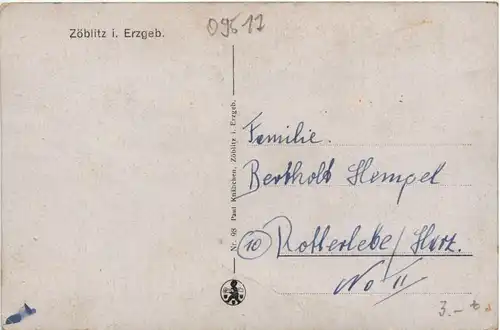 09517
Zöblitz i. Erzgeb.
Nr. 98 Paul Knäbchen, Zöblitz i. Erzgeb.
Familie.
Berthold Hempel
10 Rotterlebe/Harz.
No 11
3.-